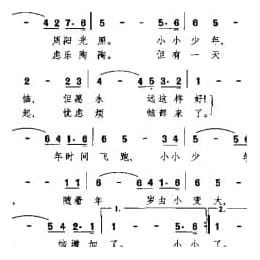 - 4 2 7·6 | 2 - - | 5 5·6 |
周阳光照。 小小少年,
虑乐陶陶。 但有一天
2 - 2·3 | 4 4 5·3 2 |
恼, 但愿永 远这样好!
起, 忧虑烦 恼都来了。
6 4 1·6 | 5 - - | 5 5·6 | 6 4 1·6
年时间飞跑, 小小少 年
- - 1 1 | 1 - 6 | 6 5·7
随着年 岁由小变大,
1. 2.
5 4 2·1 | 1 - - | 5 5·6 | 1 - -
恼增加了。 小小 了。